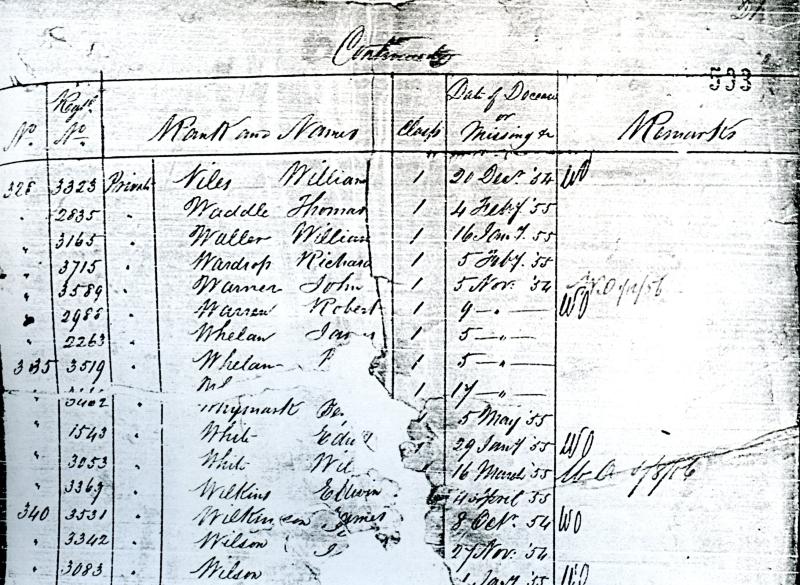 Continued
533
No. Regtl. No. Rank and Names Class Date of Decease or Missing &c Remarks
328 3323 Private Niles William 1 20 Decr. '54 WO
" 2835 " Waddle Thomas 1 4 Feby '55
" 3165 " Waller William 1 16 Jany. 55
" 3715 " Wardrop Richard 1 5 Feby. 55
" 3589 " Warner John 1 5 Nov. '54
" 2988 " Warren Robert 1 9 - " - WO
" 2263 " Whelan 1 5 - " -
335 3519 " Whelan 1 5 - " -
1 17 - " -
" 3402 " Whymark 5 May '55
" 1543 " White Edwd 29 Jany '55 WO
" 3053 " White Wil 16 March '55
" 3369 " Wilkins Edwin 4 April 55
340 3531 " Wilkinson James 8 Octr. 54 WO
" 3342 " Wilson J 27 Nov. '54
" 3083 " Wilson 1 Jany '55 WO